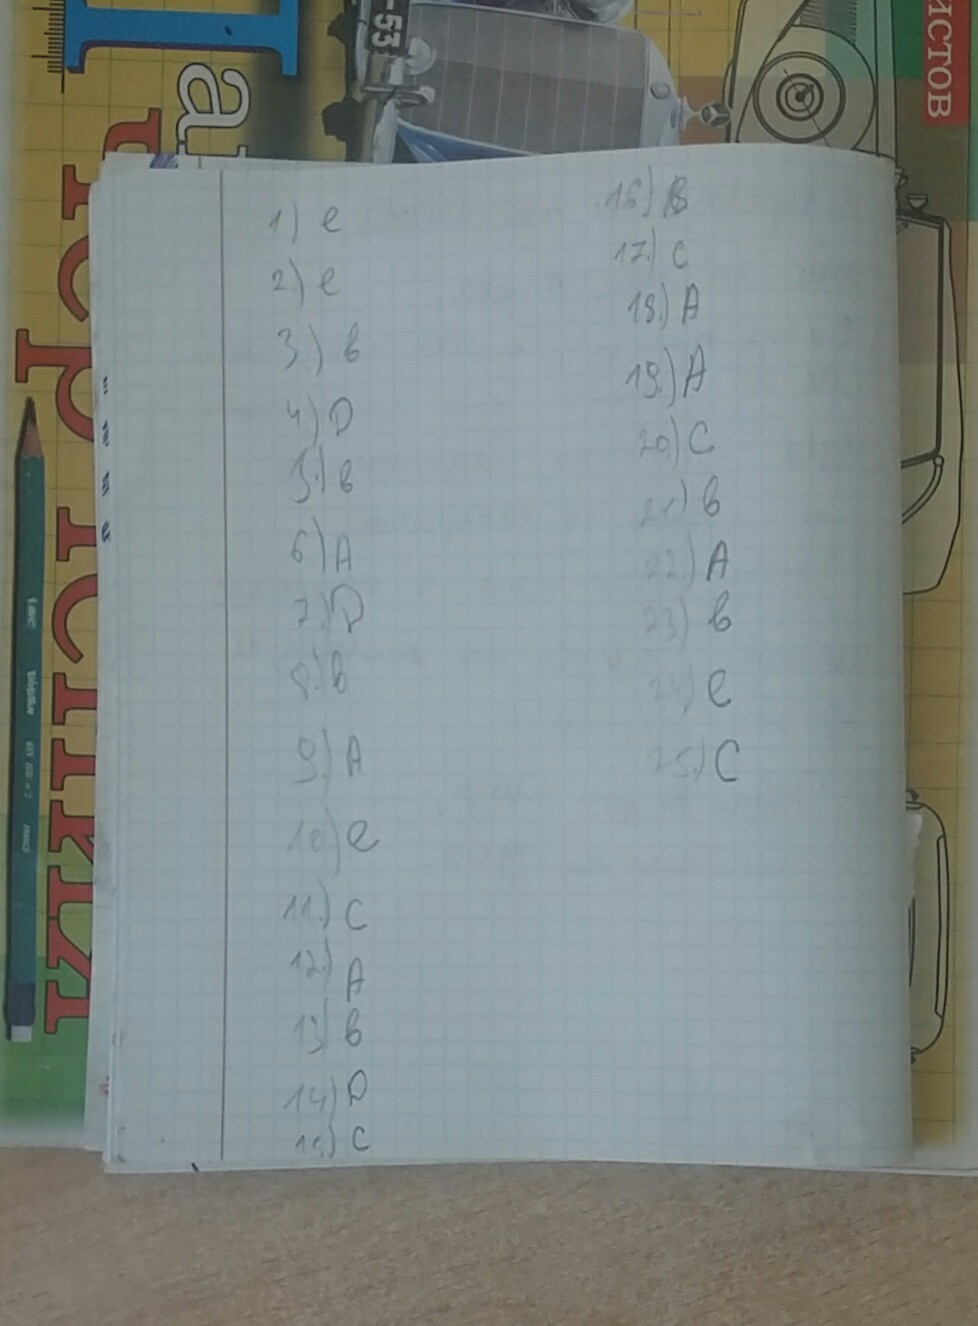 -53
ИСТОВ
1) e
2.) e
3.) в
4) D
5.) в
6.) A
7.) D
8.) в
9.) A
10.) e
11.) C
12.) A
13) в
14) D
15) C
16) B
17.) C
18.) A
19.) A
20.) C
21) в
22.) A
23) в
24) e
25.) C